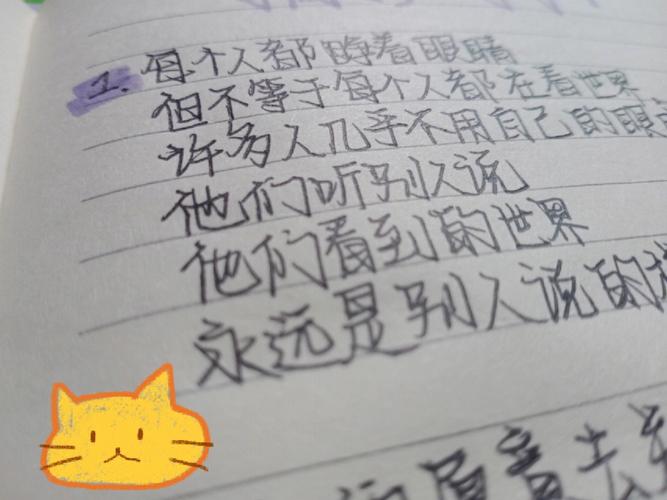 1. 每个人都睁着眼睛
但不等于每个人都在看世界
许多人几乎不用自己的眼
他们听别人说
他们看到的世界
永远是别人说的